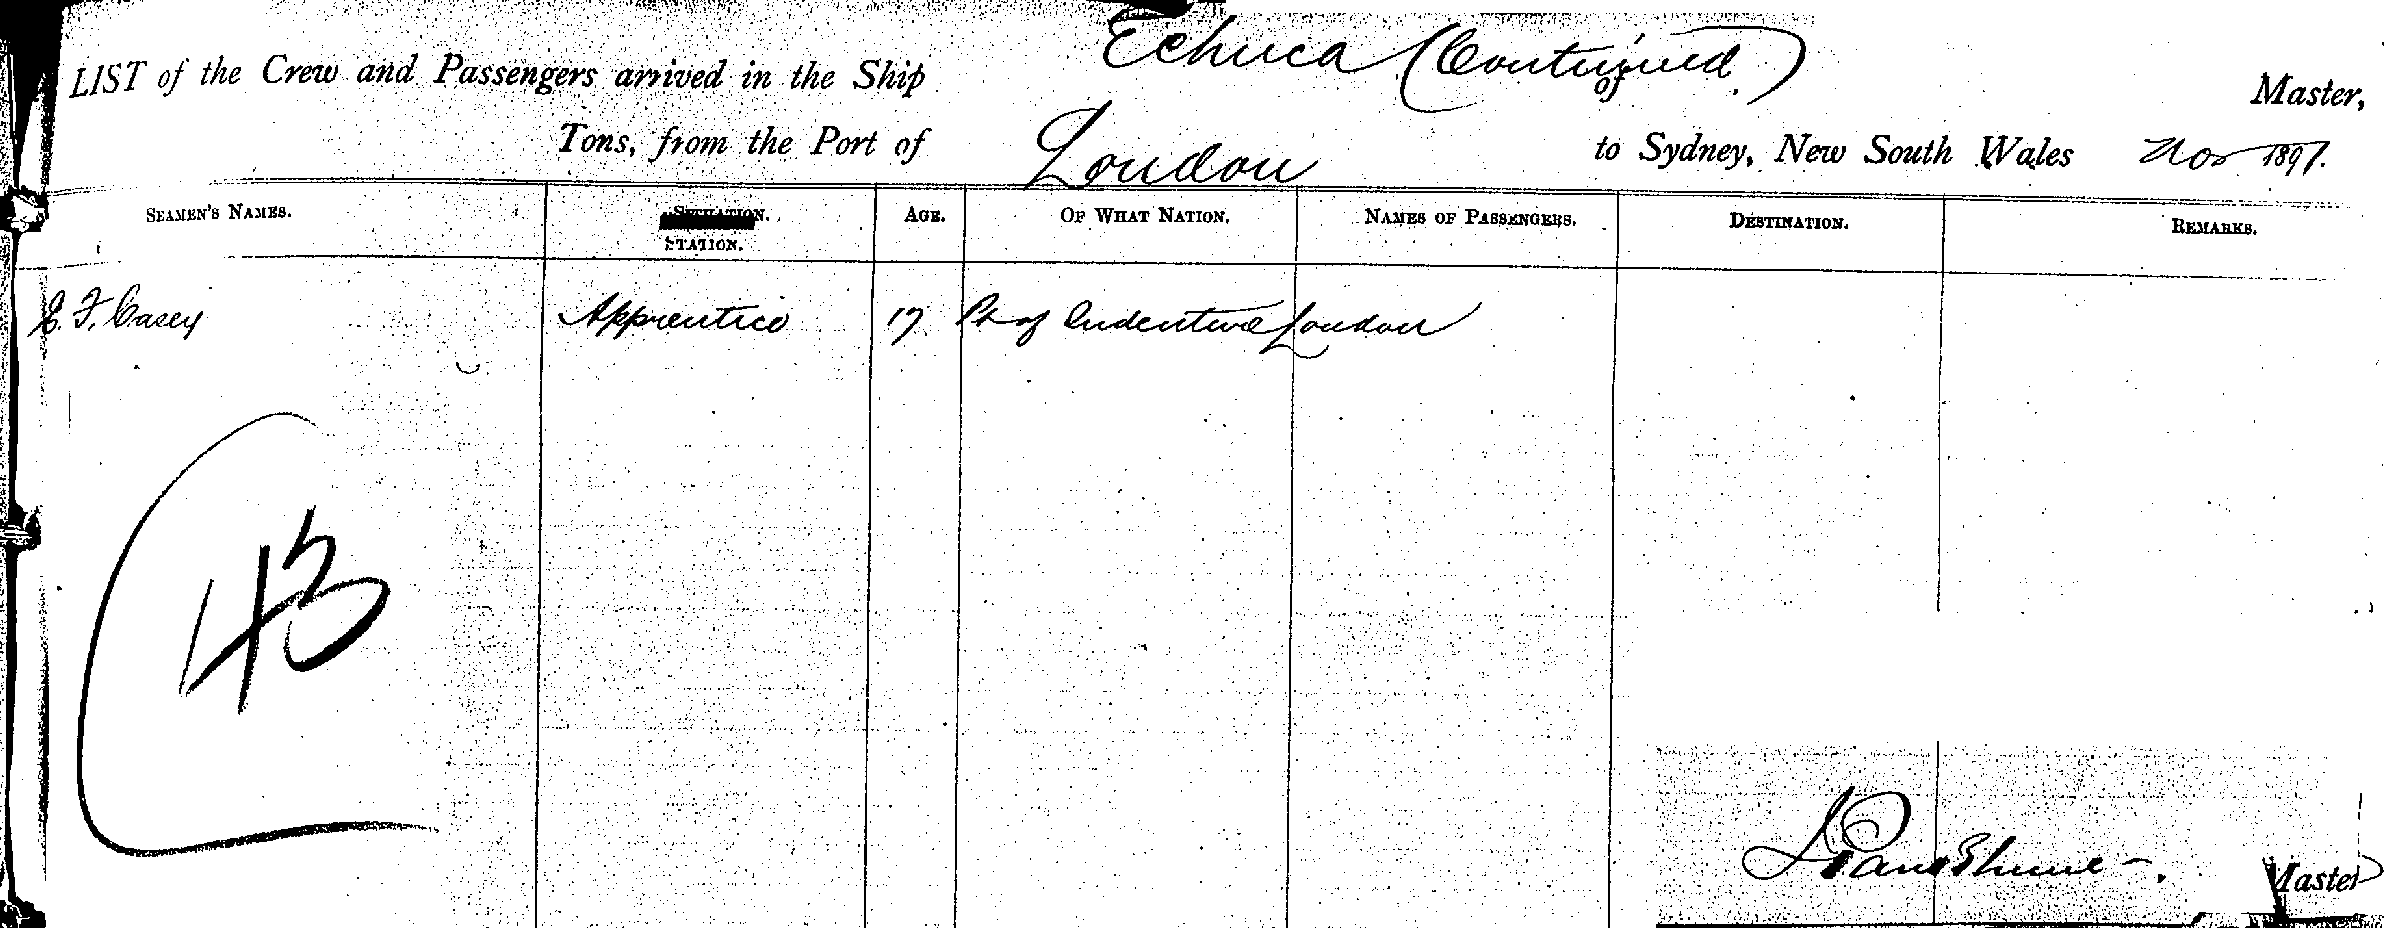 LIST of the Crew and Passengers arrived in the Ship Echuca (Continued.) of Master,
Tons, from the Port of London to Sydney, New South Wales Nov 1897.
SEAMEN'S NAMES. SITUATION. STATION. AGE. OF WHAT NATION. NAMES OF PASSENGERS. DESTINATION. REMARKS.
E. F. Casey Apprentice 17 Pt of Indenture London
43
Master